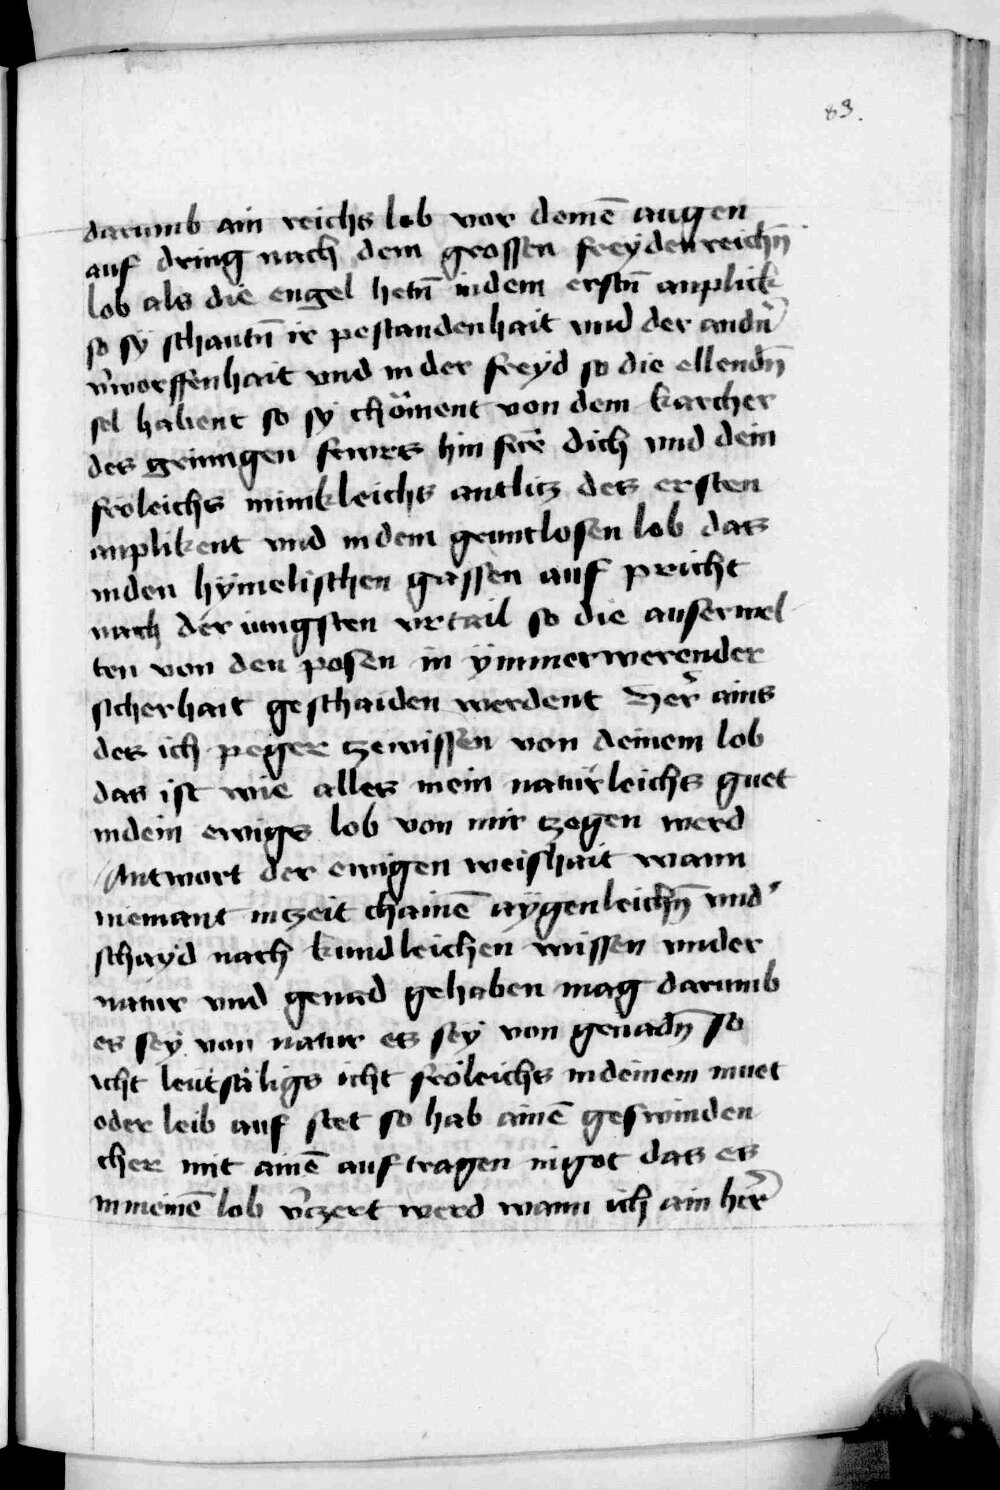 83.
darumb ain reichs lob vor deinē augen
auf dring nach dem grossen freydenreichn̄
lob als die engel hetn̄ indem erstn̄ anplick
so sy schautn̄ ir pestandenhait vnd der andn̄
v̄worffenhait vnd in der freyd so die ellendn̄
sel habent so sy chöment von dem karcher
des grimigen fewrs hin für dich vnd dein
fröleichs minikleichs antlitz des ersten
anplikent vnd indem gruntlosen lob das
inden hymelischen gassen auf pricht
nach der iungsten vrtail so die auserwel
ten von den posen in ymmerwerender
sicherhait geschaiden werdent Her̄ ains
des ich peger tzewissen von deinem lob
das ist wie alles mein natürleichs guet
indein ewigs lob von mir tzogen werd
Antwort der ewigen weishait wann
niemant intzeit chainē aygenleichn̄ vnd'
schayd nach kundleichen wissen vnder
natur vnd genad gehaben mag darumb
es sey von natur es sey von genadn̄ so
icht leutsäligs icht fröleichs indeinem muet
oder leib auf stet so hab ainē geswinden
cher mit ainē auftragen ingot das es
inmeinē lob v̄czert werd wann ich ain her̄